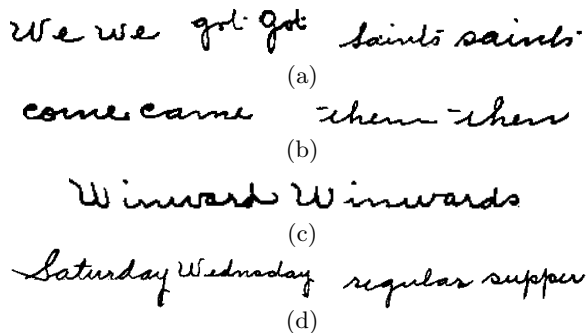 We we got Got Saints saints
(a)
come came them then
(b)
Winward Winwards
(c)
Saturday Wednsday regular supper
(d)